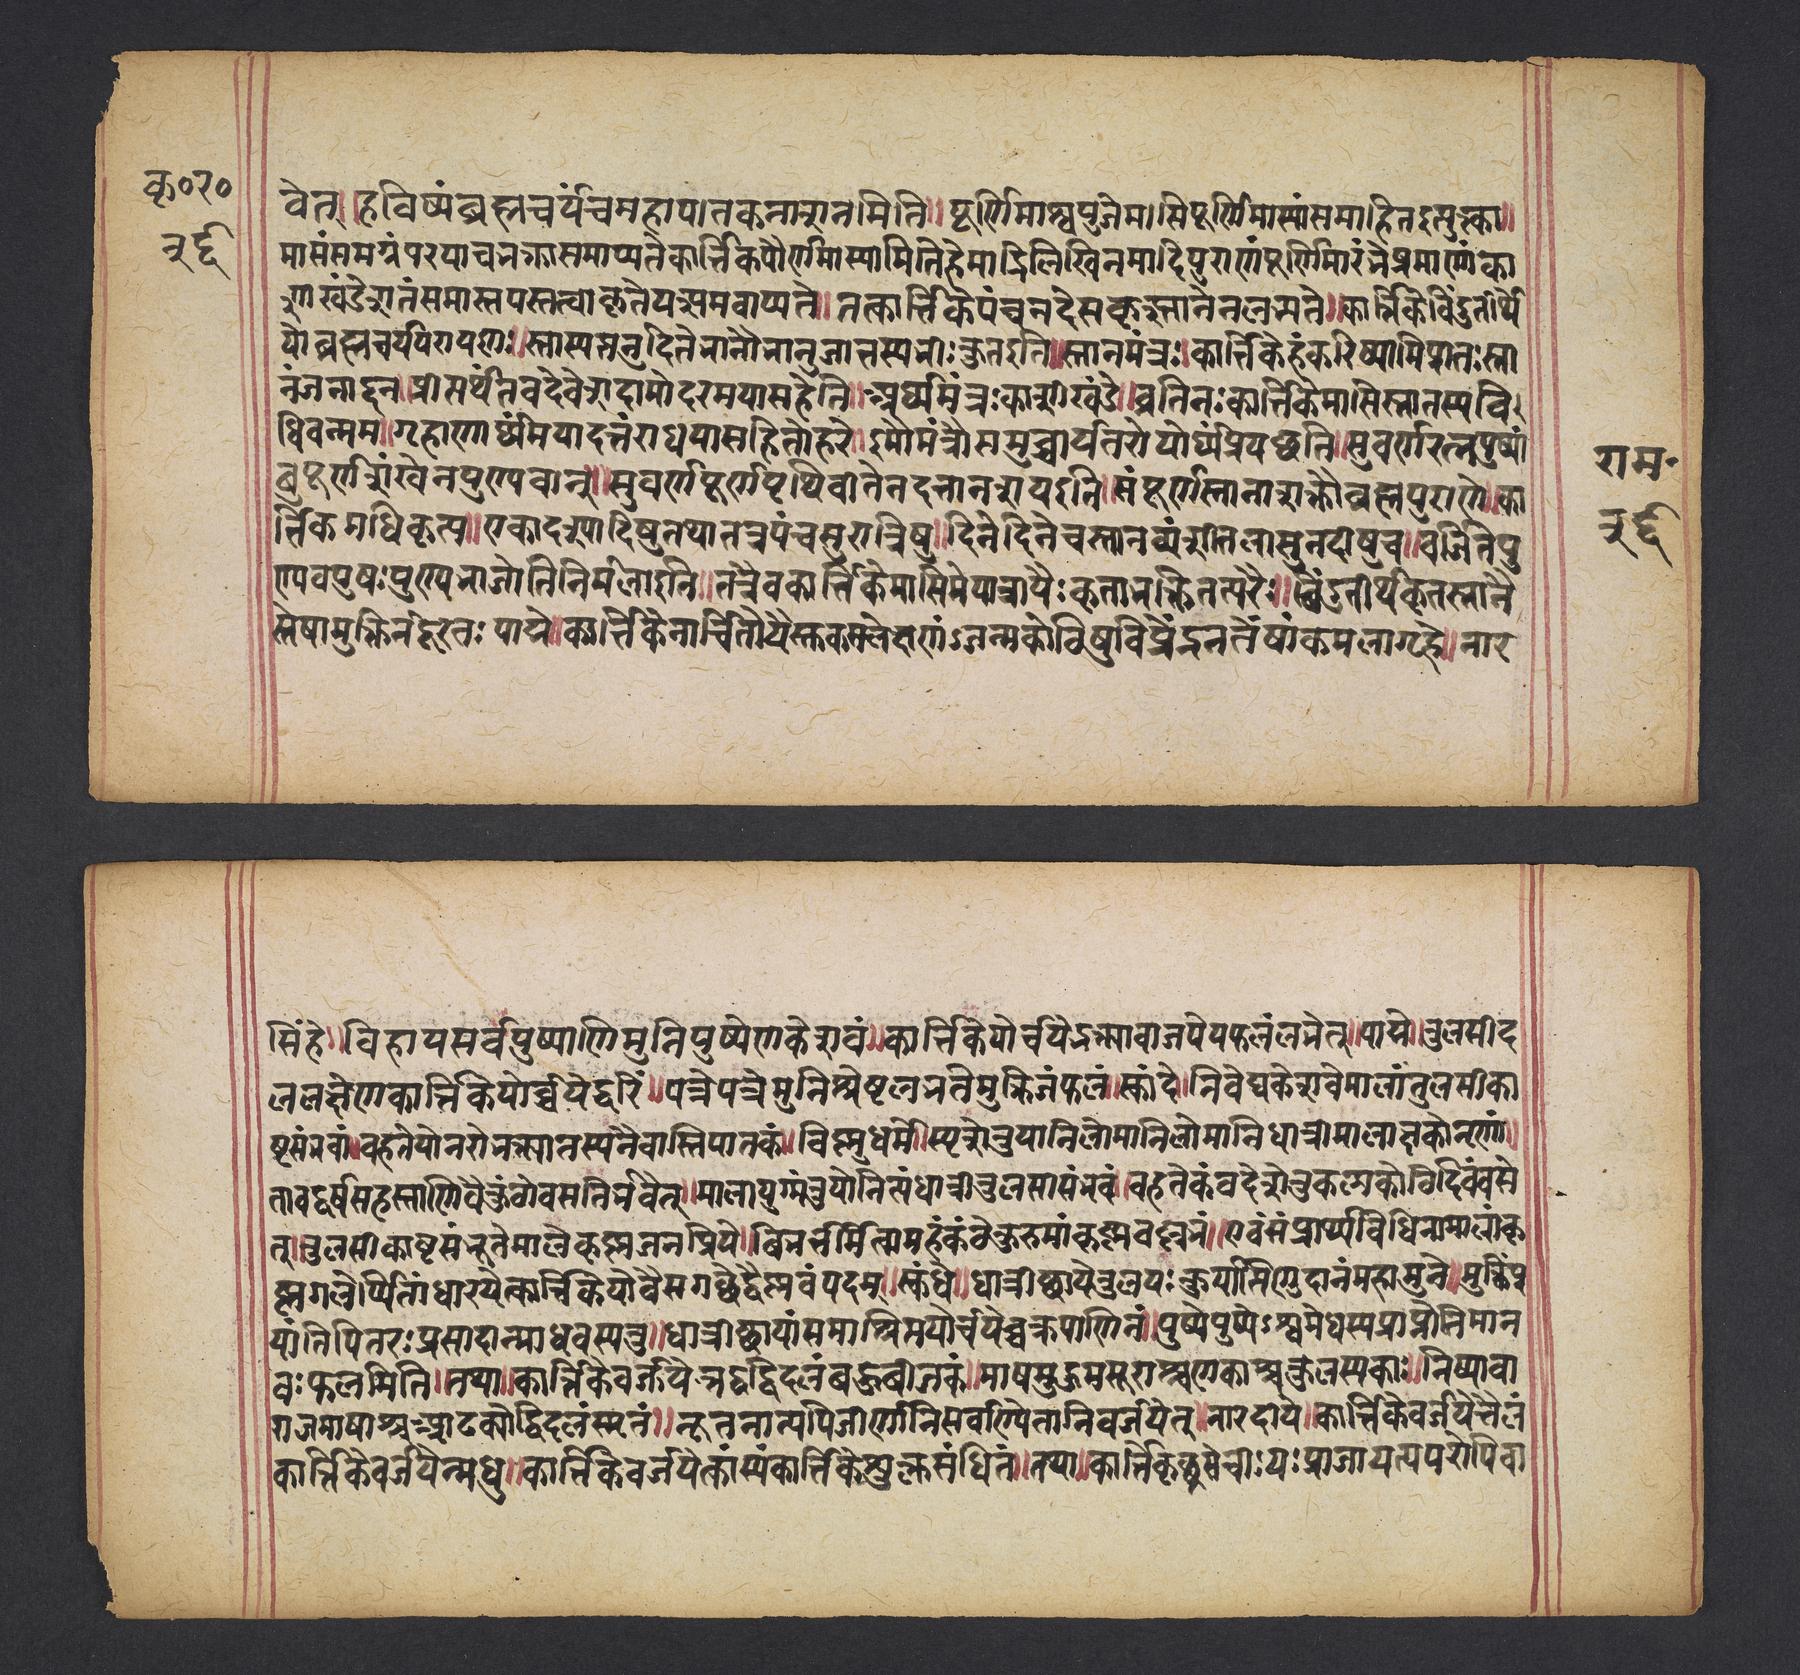 कृ०र०
वेत्॥हविष्यंब्रह्मचर्यंचमहापातकनाशनमिति॥पूर्णिमाश्वयुजेमासिपूर्णिमास्यांसमाहितइत्युक्त्वा॥
मासंसमग्रंपरयाचभक्त्यासमाप्यतेकार्त्तिकपौर्णमास्यामितिहेमाद्रिलिखितमादिपुराणंपूर्णिमारंभेप्रमाणंका
शीखंडेशतंसमास्तपस्तप्त्वाकृतेयत्समवाप्यते॥तत्कार्त्तिकेपंचनदेसकृत्स्नानेनलभ्यते॥कार्त्तिकेविंदुतीर्थे
योब्रह्मचर्यपरायणः॥स्नास्यत्यनुदितेभानौभानुजात्तस्यभीःकुतइति॥स्नानमंत्रः॥कार्त्तिकेहंकरिष्यामिप्रातःस्ना
नंजनार्द्दन॥प्रीत्यर्थंतवदेवेशदामोदरमयासहेति॥अर्घ्यमंत्रःकाशीखंडे॥व्रतिनःकार्त्तिकेमासिस्नातस्यवि
धिवन्मम॥गृहाणार्घ्यंमयादत्तंराधयासहितोहरे॥इमौमंत्रौसमुच्चार्यतरोयोर्घ्यंप्रियच्छति॥सुवर्णरत्नपुष्पां
बुपूर्णशंखेनपुण्यवान्॥सुवर्णपूर्णपृथिवीतेनदत्तानशयइति॥संपूर्णस्नानाशक्तौब्रह्मपुराणे॥का
र्त्तिकमधिकृत्य॥एकादश्यादिषुतथातत्रपंचसुरात्रिषु॥दिनेदिनेचस्नानव्यंशीतलासुनदीषुच॥वर्जितेपु
ण्यवपुषःपुण्यभाजोतिनिर्मलाइति॥तत्रैवकार्त्तिकेमासिमेयात्रायैःकृताभक्तितत्परैः॥बिंदुतीर्थकृतस्नानै
स्तेषामुक्तिर्नदूरतः पाद्मे॥कार्त्तिकेनार्चितोयैस्तुकमलेक्षणंजन्मकोटिषुविप्रेंद्रनतेषांकमलागृहे॥नार
राम॰
सिंहे॥विहायसर्वपुष्पाणिमुनिपुष्पेणकेशवं॥कार्त्तिकेयोर्चयेद्भक्त्यावाजपेयफलंलभेत्॥पाद्मे॥तुलसीद
ललक्षेणकार्त्तिकेयोर्च्चयेद्धरिं॥पत्रेपत्रेमुनिश्रेष्ठलभतेमुक्तिजंफलं॥स्कांदे॥निवेद्यकेशवेमालांतुलसीका
ष्ठसंभवां॥वहतेयोनरोभक्त्यातस्यनैवास्तिपातकं॥विष्णुधर्मे॥स्पृशेत्तुयानिलोमानिलोमानिधात्रीमालाकलौनृणां॥
तावद्वर्षसहस्राणिवैकुंठेवसतिर्भवेत्॥मालायुग्मंतुयोनित्यंधात्रीतुलसीसंभवं॥वहतेकंठदेशेतुकल्पकोटिदिवंवसे
त्॥तुलसीकाष्ठसंभूतेमालेकृष्णजनप्रिये॥बिभर्त्तिमित्वामहंकंठेकुरुमांकृष्णवल्लभं॥एवंसंप्रार्थ्यविधिनामालांकृ
ष्णगलेर्पितांधारयेत्कार्त्तिकेयोवैसगच्छेद्वैष्णवंपदम्॥स्कंधे॥धात्रीच्छायेतुलयःकुर्यात्पिंडदानंमहामुने॥मुक्तिंप्र
यांतिपितरःप्रसादान्माधवस्यतु॥धात्रीच्छायांसमाश्रित्ययोर्चयेच्चक्रपाणिनं॥पुष्पेपुष्पेऽश्वमेधस्यप्राप्नोतिमान
वःफलमिति॥तथा॥कार्त्तिकेवर्जयेत्तद्वद्विदलंबहुबीजकं॥माषमुद्गमसूराश्चणकाश्चकुलत्थकाः॥निष्पावा
राजमाषाश्चआढक्योद्विदलंस्मृतं॥नूतनान्यपिजीर्णानिसर्वाण्येतानिवर्जयेत्॥नारदीये॥कार्त्तिकेवर्जयेत्तैलं
कार्त्तिकेवर्जयेन्मधु॥कार्त्तिकेवर्जयेत्कांस्यंकार्त्तिकेशुक्लसंधितं॥तथा॥कार्त्तिकेकृच्छ्रसेवीयःप्राजापत्यपरोपिवा